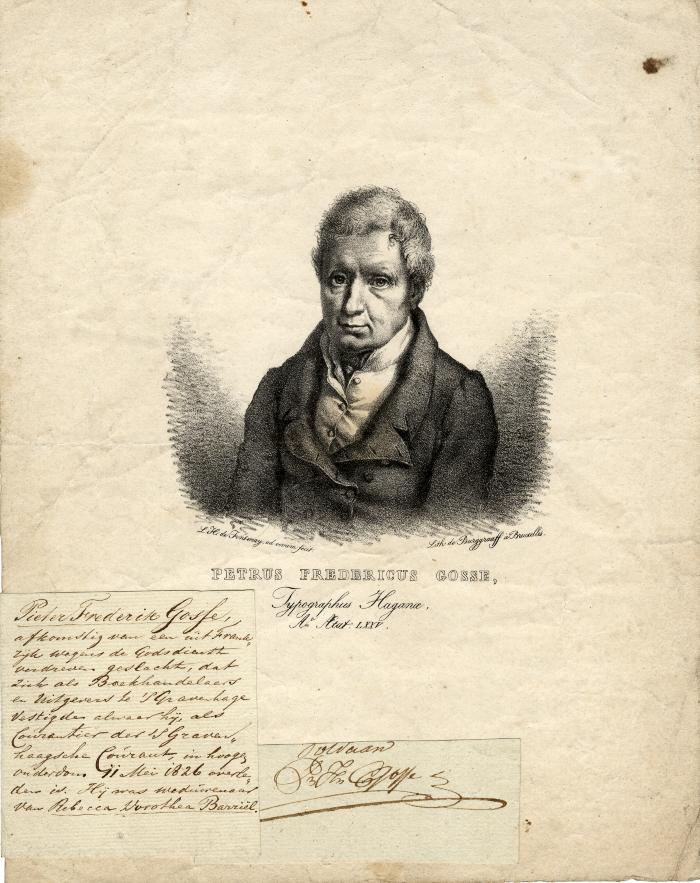 L.H. de Fontenay, ad vivum fecit.
Lith. de Burggraaff à Bruxelles.
PETRUS FREDERICUS GOSSE,
Typographus Haganæ.
Aº Ætat. LXXV.
Pieter Frederik Gosse,
afkomstig van een uit Frank„
rijk wegens de Godsdienst
verdreven geslacht, dat
zich als Boekhandelaers
en Uitgevers te 'S Gravenhage
vestigden alwaer hij, als
Courantier der 'S Graven„
haagsche Courant, in hoogen
ouderdom 11 Mei 1826 overle„
den is. Hij was weduwenaar
van Rebecca Dorothea Barriël.
voldaan
Gosse